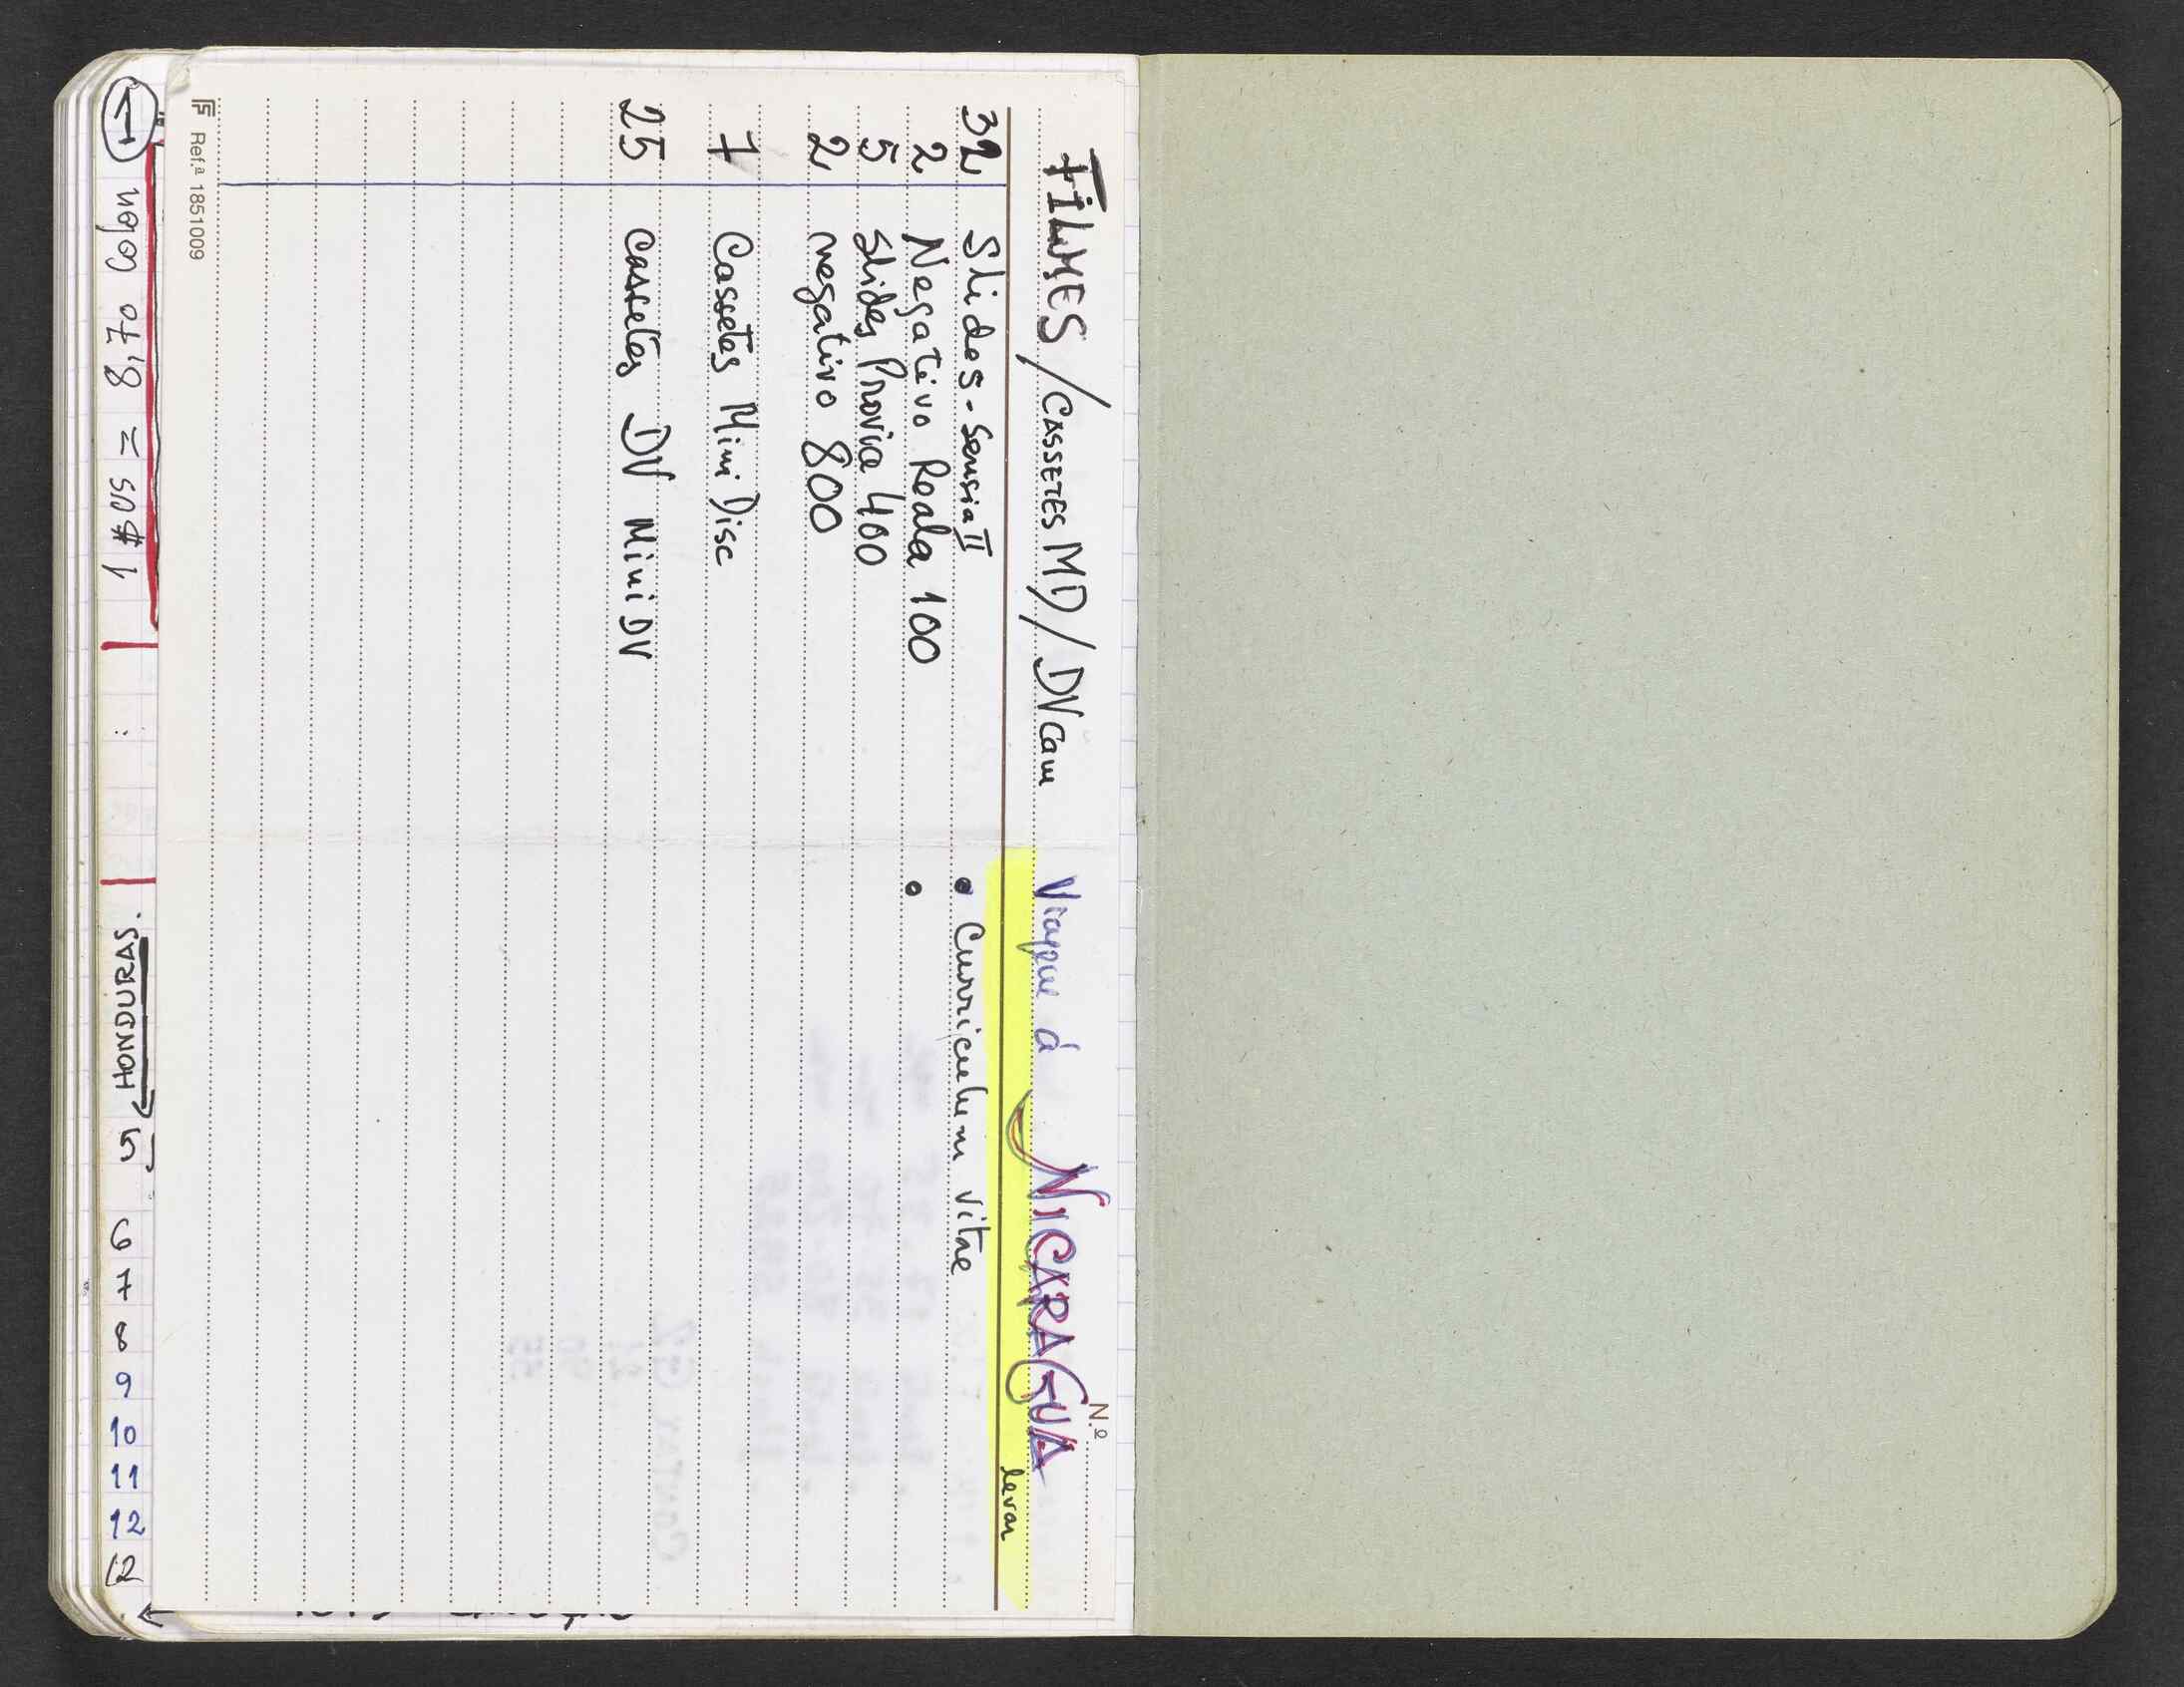 N.º
FILMES / CASSETES MD / DVCam
Viagem á NICARAGUA
levar
32 Slides - Sensia II
• Curriculum vitae
2 Negativo Reala 100
•
5 Slides Provia 400
2 negativo 800
7 Cassetes Mini Disc
25 Cassetes DV Mini DV
Ref.ª 1851009
HONDURAS.
1 1 $US = 8,70
5 6 7 8 9 10 11 12 12